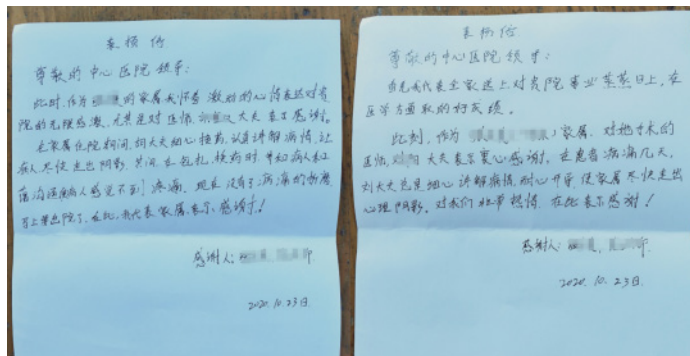 表扬信
尊敬的中心医院领导:
此时,作为 的家属我怀着激动的心情表达对贵
院的无限感激,尤其是对医师 大夫表示感谢。
在家属住院期间, 大夫细心换药,认真讲解病情,让
病人尽快走出阴影,其间,在包扎、换药时,
沟通使病人感觉不到疼痛。现在没有了病痛的折磨
马上要出院了,在此,我代表家属,表示感谢!
感谢人:
2020.10.23日
表扬信
尊敬的中心医院领导:
首先我代表全家送上对贵院事业蒸蒸日上,在
医学方面取的好成绩。
此刻,作为 家属,对把手术的
医师 大夫表示衷心感谢。在患者病痛几天,
刘大夫总是细心讲解病情,耐心开导,使家属尽快走出
心理阴影。对我们非常热情,在此表示感谢!
感谢人:
2020.10.23日